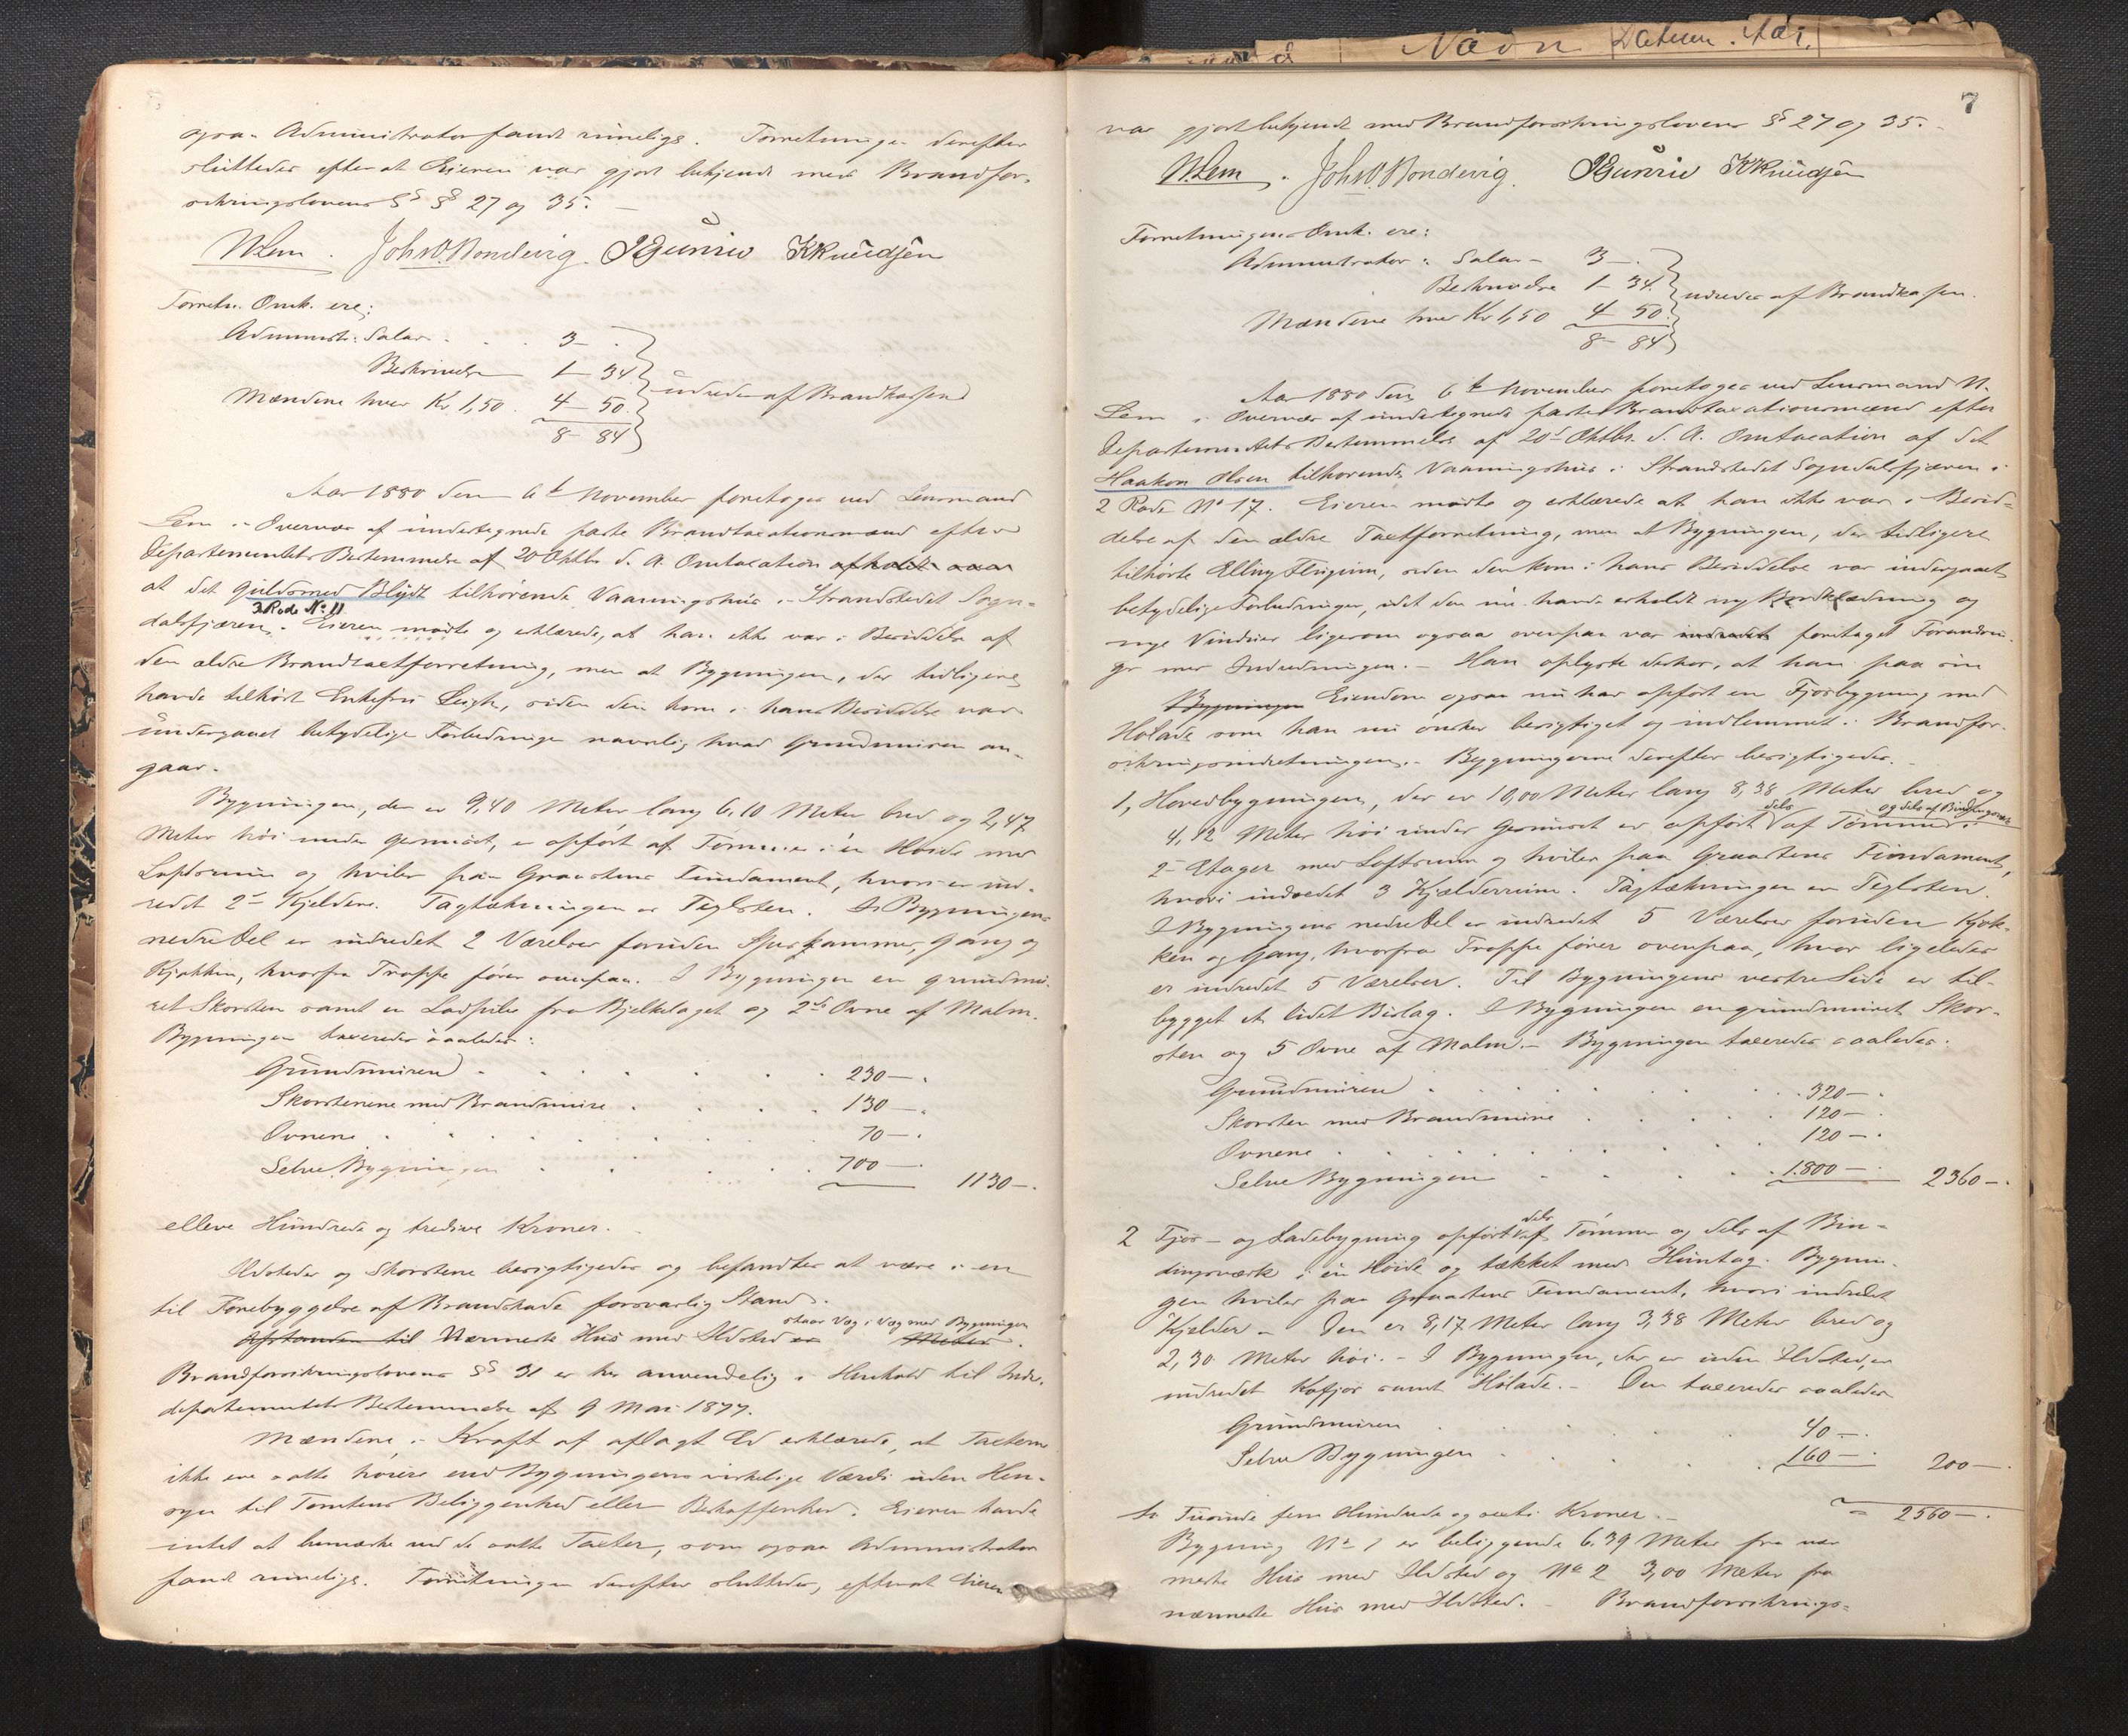 ogsaa Administrator fandt rimelige. Forretningen derefter
sluttedes efterat Eieren var gjort bekjendt med Brandfor-
sikringslovens §§ 27 og 35. —
N Lem . Joh. O. Nondevig. KKnudsen
Forretn. Omk. ere:
Administr: Salar . . . 3 — .
Beskrivelse 1 — 34
Mændene hver Kr 1,50 . 4 — 50. udredes af Brandkassen
8 — 84
Aar 1880 den 6te November foretoges ved Lensmand
Lem i Overvær af undertegnede faste Brandtaxationsmænd efter
Departementets Bestemmelse af 20 Oktbr d. A. Omtaxation
at det Guldsmed Blydt tilhørende Vaaningshus i Strandstedet Sogn-
3 Rode No 11
dalsfjæren. Eieren mødte og erklærede, at han ikke var i Besiddelse af
den ældre Brandtaxtforretning, men at Bygningen, der tidligere
havde tilhørt Enkefru Leigh, siden den kom i hans Besiddelse var
undergaaet betydelige Forbedringer navnlig hvad Grundmuren an-
gaar.
Bygningen, der er 9,40 Meter lang 6,10 Meter bred og 2,47
Meter høi under Gesimset, er opført af Tømmer i én Høide med
Loftsrum og hviler paa Graastens Fundament, hvori er ind-
redet 2de Kjeldere. Tagtækningen er Teglsten. I Bygningens
nedre Del er indredet 2 Værelser foruden Spiskammer, Gang og
Kjøkken, hvorfra Trappe fører ovenpaa. I Bygningen en grundmu-
ret Skorsten samt en Ladpibe fra Bjelkelaget og 2de Ovne af Malm.
Bygningen taxeredes saaledes:
Grundmuren . . . . . . 230 — .
Skorstenene med Brandmure . . . . 130 — .
Ovnene . . . . . . . 70 — .
Selve Bygningen . . . . 700 — . 1130 — .
elleve Hundrede og tredive Kroner.
Ildsteder og Skorstene besigtigedes og befandtes at være i en
til Forebyggelse af Brandskade forsvarlig Stand.
staar Væg i Væg med Bygningen
Afstanden til Nærmeste Hus med Ildsted er Meter.
Brandforsikringslovens §§ 31 er her anvendelig i Henhold til Indre-
departementets Bestemmelse af 9 Mai 1877.
Mændene i Kraft af aflagt Ed erklærede, at Taxterne
ikke ere satte høiere end Bygningens virkelige Værdi uden Hen-
syn til Tomtens Beliggenhed eller Beskaffenhed. Eieren havde
intet at bemærke ved de satte Taxter, som ogsaa Administrator
fandt rimelige. Forretningen derefter sluttedes, efterat Eieren
Navn Datum. Aar.
7
var gjort bekjendt med Brandforsikringslovens §§ 27 og 35. —
N. Lem . Joh. O. Nondevig. KKnudsen
Forretningens Omk. ere:
Administrator: Salar — 3 — .
Beskrivelse 1 — 34.
Mændene hver Kr 1,50 4 — 50. udredes af Brandkassen.
8 — 84
Aar 1880 den 6te November foretoges ved Lensmand N.
Lem i Overvær af undertegnede faste Brandtaxationsmænd efter
Departementets Bestemmelse af 20de Oktbr. d. A. Omtaxation af det
Haakon Olsen tilhørende Vaaningshus i Strandstedet Sogndalsfjæren i
2 Rode No 17. Eieren mødte og erklærede at han ikke var i Besid-
delse af den ældre Taxtforretning, men at Bygningen, der tidligere
tilhørte Elling, siden den kom i hans Besiddelse var undergaaet
betydelige Forbedringer, idet den nu havde erholdt ny Bordklædning og
nye Vinduer ligesom ogsaa ovenpaa var indredet foretaget Forandrin-
ger med Indredningen. — Han oplyste derhos, at han paa sin
Bygningen Eiendom ogsaa nu har opført en Fjøsbygning med
Hølade som han nu ønsker besigtiget og indlemmet i Brandfor-
sikringsindretningen. — Bygningerne derefter besigtigedes. —
1, Hovedbygningen, der er 10,00 Meter lang 8,38 Meter bred og
dels og dels af Bindingsværk
4,12 Meter høi under Gesimset er opført af Tømmer i
2 Etager med Loftsrum og hviler paa Graastens Fundament,
hvori indredet 3 Kjælderrum. Tagtækningen er Teglsten.
I Bygningens nedre Del er indredet 5 Værelser foruden Kjøk-
ken og Gang, hvorfra Trappe fører ovenpaa, hvor ligeledes
er indredet 5 Værelser. Til Bygningens vestre Side er til-
bygget et lidet Bislag. I Bygningen en grundmuret Skor-
sten og 5 Ovne af Malm. — Bygningen taxeredes saaledes.
Grundmuren . . . . . . 320 — .
Skorsten med Brandmure . . . 120 — .
Ovnene . . . . . . . 120 — .
Selve Bygningen . . . . 1800 — . 2360 — .
dels
2 Fjøs — og Ladebygning opført af Tømmer og dels af Bin-
dingsværk i én Høide og tækket med Huntag. Bygnin-
gen hviler paa Graastens Fundament, hvori indredet
Kjelder — Den er 8,17 Meter lang 3,38 Meter bred og
2,30 Meter høi. — I Bygningen, der er uden Ildsted, er
indredet Kofjøs samt Hølade. — Den taxeredes saaledes
Grundmuren . . . . . 40 — .
Selve Bygningen . . . . 160 — . 200 — .
to Tusinde fem Hundrede og sexti Kroner. — 2560 — .
Bygning No 1 er beliggende 6.39 Meter fra nær-
meste Hus med Ildsted og No 2 3,00 Meter fra
nærmeste Hus med Ildsted. — Brandforsikrings-